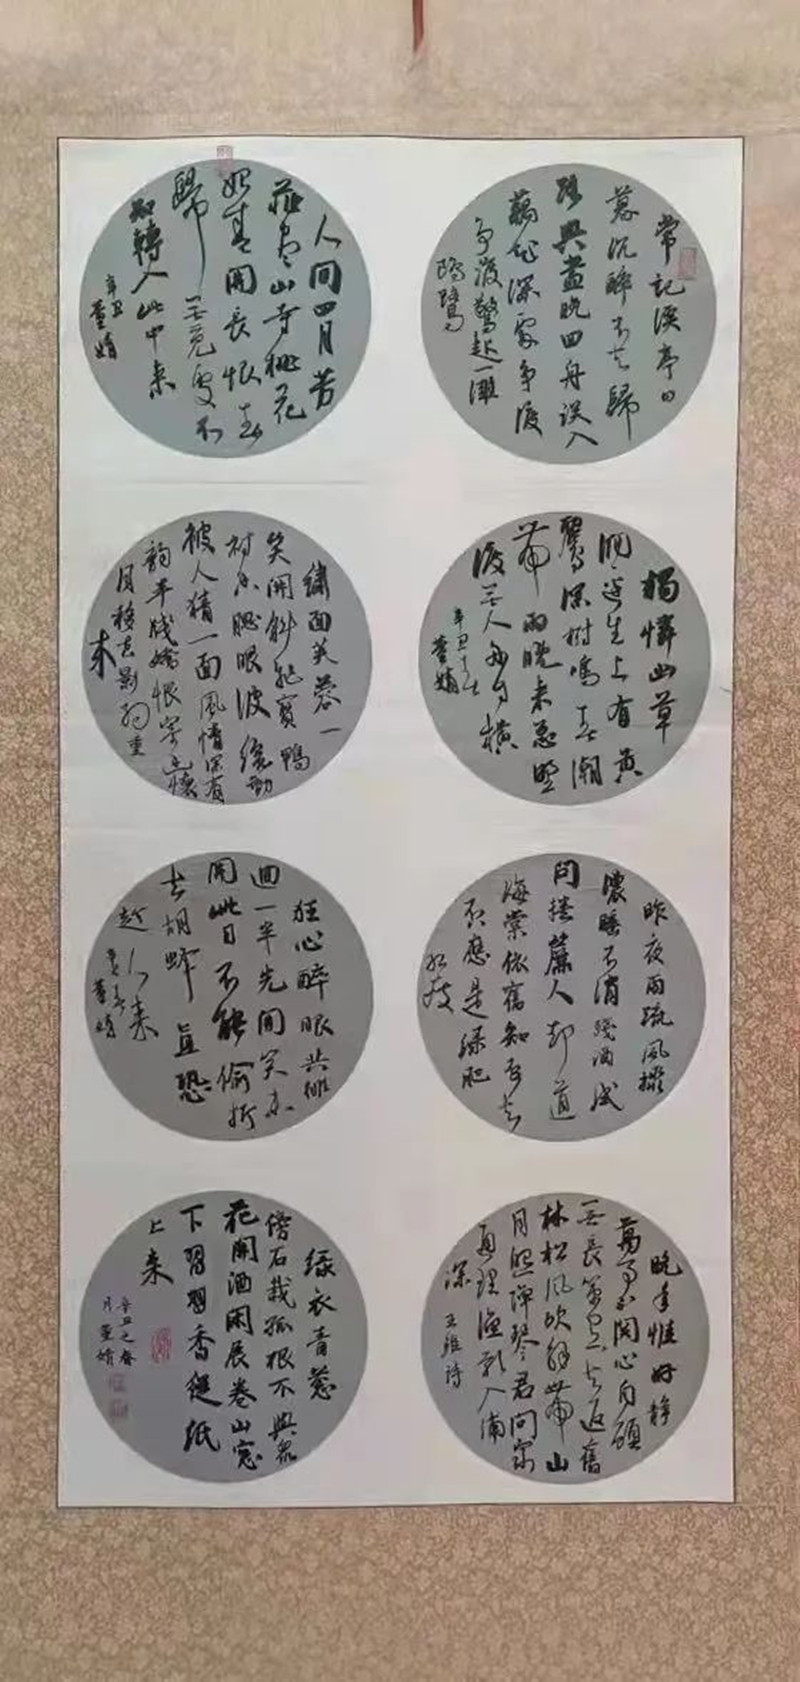 常記溪亭日
暮沉醉不知歸
路興盡晚回舟誤入
藕花深處争渡
争渡驚起一灘
鷗鷺
獨憐幽草
澗邊生上有黄
鸝深樹鳴春潮
帶雨晚来急野
渡無人舟自横
辛丑
董婧
昨夜雨疏風驟
濃睡不消殘酒試
問捲簾人却道
海棠依舊知否知
否應是緑肥
紅瘦
晚年惟好静
萬事不関心自顧
無長策空知返舊
林松風吹解帶山
月照彈琴君問窮
通理漁歌入浦
深 王維詩
人间四月芳
菲盡山寺桃花
始盛開長恨春
歸無覓處不
知轉入此中来
辛丑
董婧
繡面芙蓉一
笑開斜飛寶鴨
襯香腮眼波纔動
被人猜一面風情深有
韵半牋嬌恨寄幽懷
月移花影約重
来
狂心醉眼共徘
徊一半先開笑未
開此日不能偷折
去胡蜂直恐
趁人来
董婧
緑衣青葱
傍石栽孤根不與衆
花開酒闌展卷山窓
下習習香從紙
上来
辛丑之春
月董婧